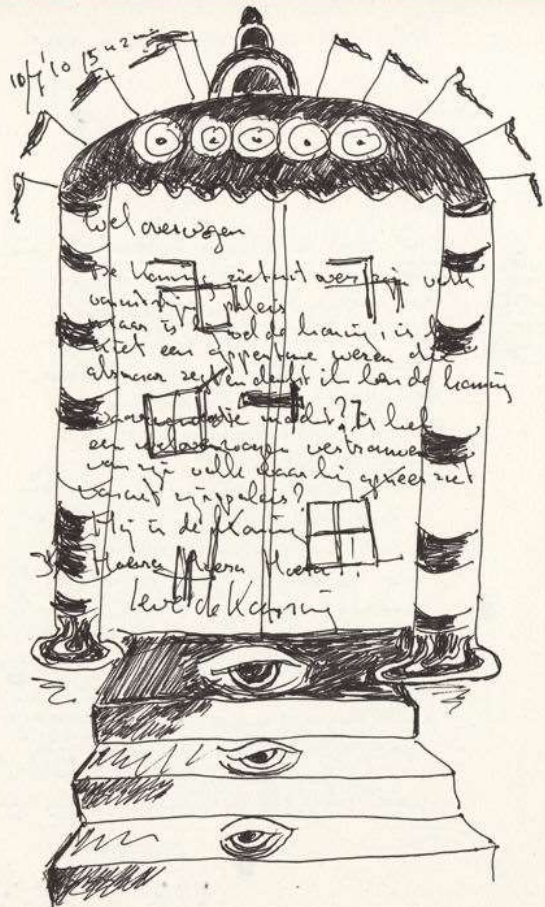 10/7'10 15 u 2 min
Wel overwogen
De koning ziet uit over zijn volk
vanuit zijn paleis
maar is hij wel de koning, is hij
niet een opperman die
alsmaar zegt en denkt ik ben de koning
waarvandaan die macht? Is het
een weloverwogen vertrouwen
van zijn volk waar hij op neer ziet
vanuit zijn paleis?
Hij is de Koning
Hoera Hoera Hoera!
leve de Koning